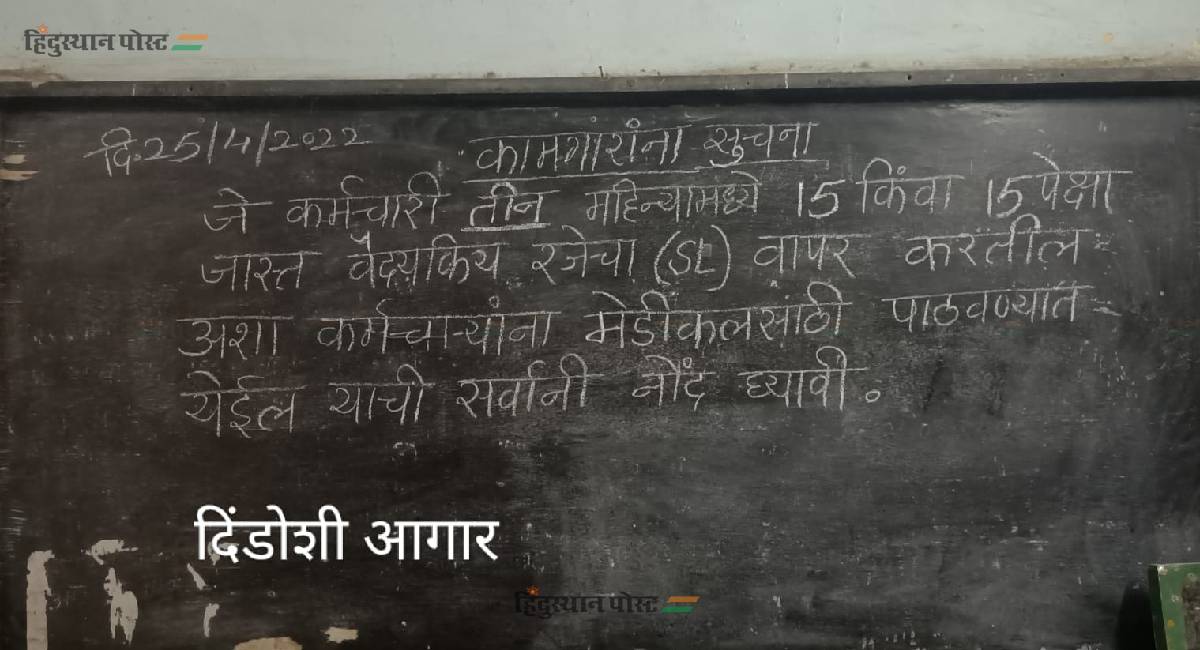 हिंदुस्थान पोस्ट
दि.25/4/2022 कामगारांना सुचना
जे कर्मचारी तीन महिन्यामध्ये 15 किंवा 15 पेक्षा
जास्त वैदयकिय रजेचा (SL) वापर करतील
अशा कर्मचाऱ्यांना मेडीकलसाठी पाठवण्यात
येईल याची सर्वानी नोंद घ्यावी.
दिंडोशी आगार
हिंदुस्थान पोस्ट